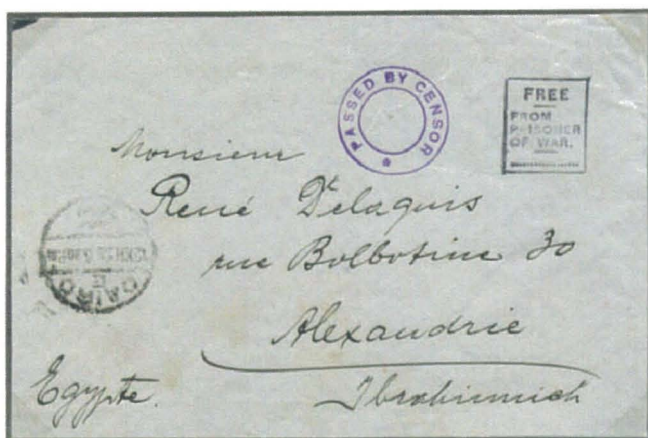 PASSED BY CENSOR
FREE
FROM
PRISONER
OF WAR.
Monsieur
René Delaquis
rue Bolbotine 30
Alexandrie
Ibrahimieh
Egypte.
CAIRO